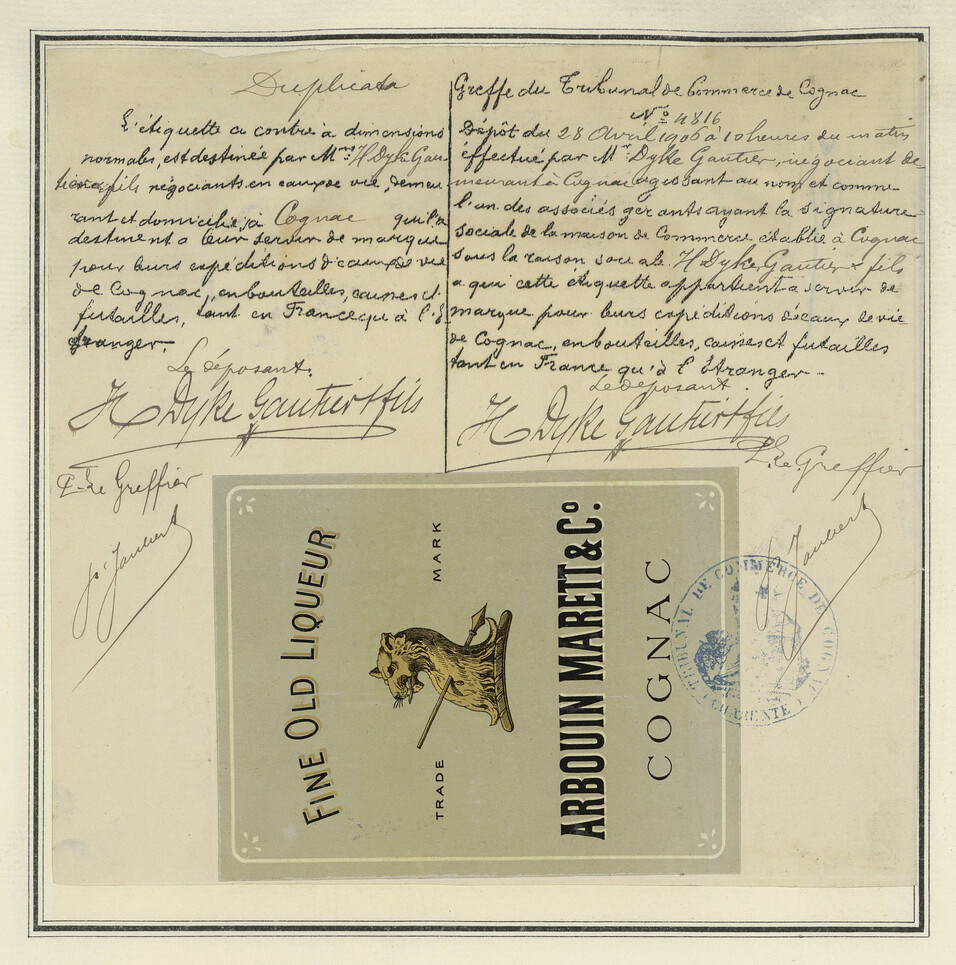 Duplicata
L'étiquette ci contre à dimensions
normales, est destinée par Mrs H Dyke Gau-
tier & fils négociants en eaux de vie, demeu
rant et domiciliés à Cognac qui l'a
destinent a leur servir de marque
pour leurs expéditions d'eaux de vie
de Cognac, en bouteilles, caisses et
futailles, tant en France qu'à l'É
tranger.
Le déposant.
H Dyke Gautier & fils
Le Greffier
Jaubert
Greffe du Tribunal de Commerce de Cognac
No 4816
Dépôt du 28 Avril 1906 à 10 heures du matin
effectué par Mr Dyke Gautier, négociant de-
meurant à Cognac agissant au nom et comme
l'un des associés gérants ayant la signature
sociale de la maison de Commerce établie à Cognac
sous la raison sociale H Dyke Gautier & fils
a qui cette étiquette appartient a servir de
marque pour leurs expéditions d'eaux de vie
de Cognac, en bouteilles, caisses et futailles
tant en France qu'à l'Étranger.
Le déposant.
H Dyke Gautier & fils
Le Greffier
Jaubert
FINE OLD LIQUEUR
TRADE MARK
ARBOUIN MARETT & Co.
COGNAC
TRIBUNAL DE COMMERCE DE COGNAC
(CHARENTE)